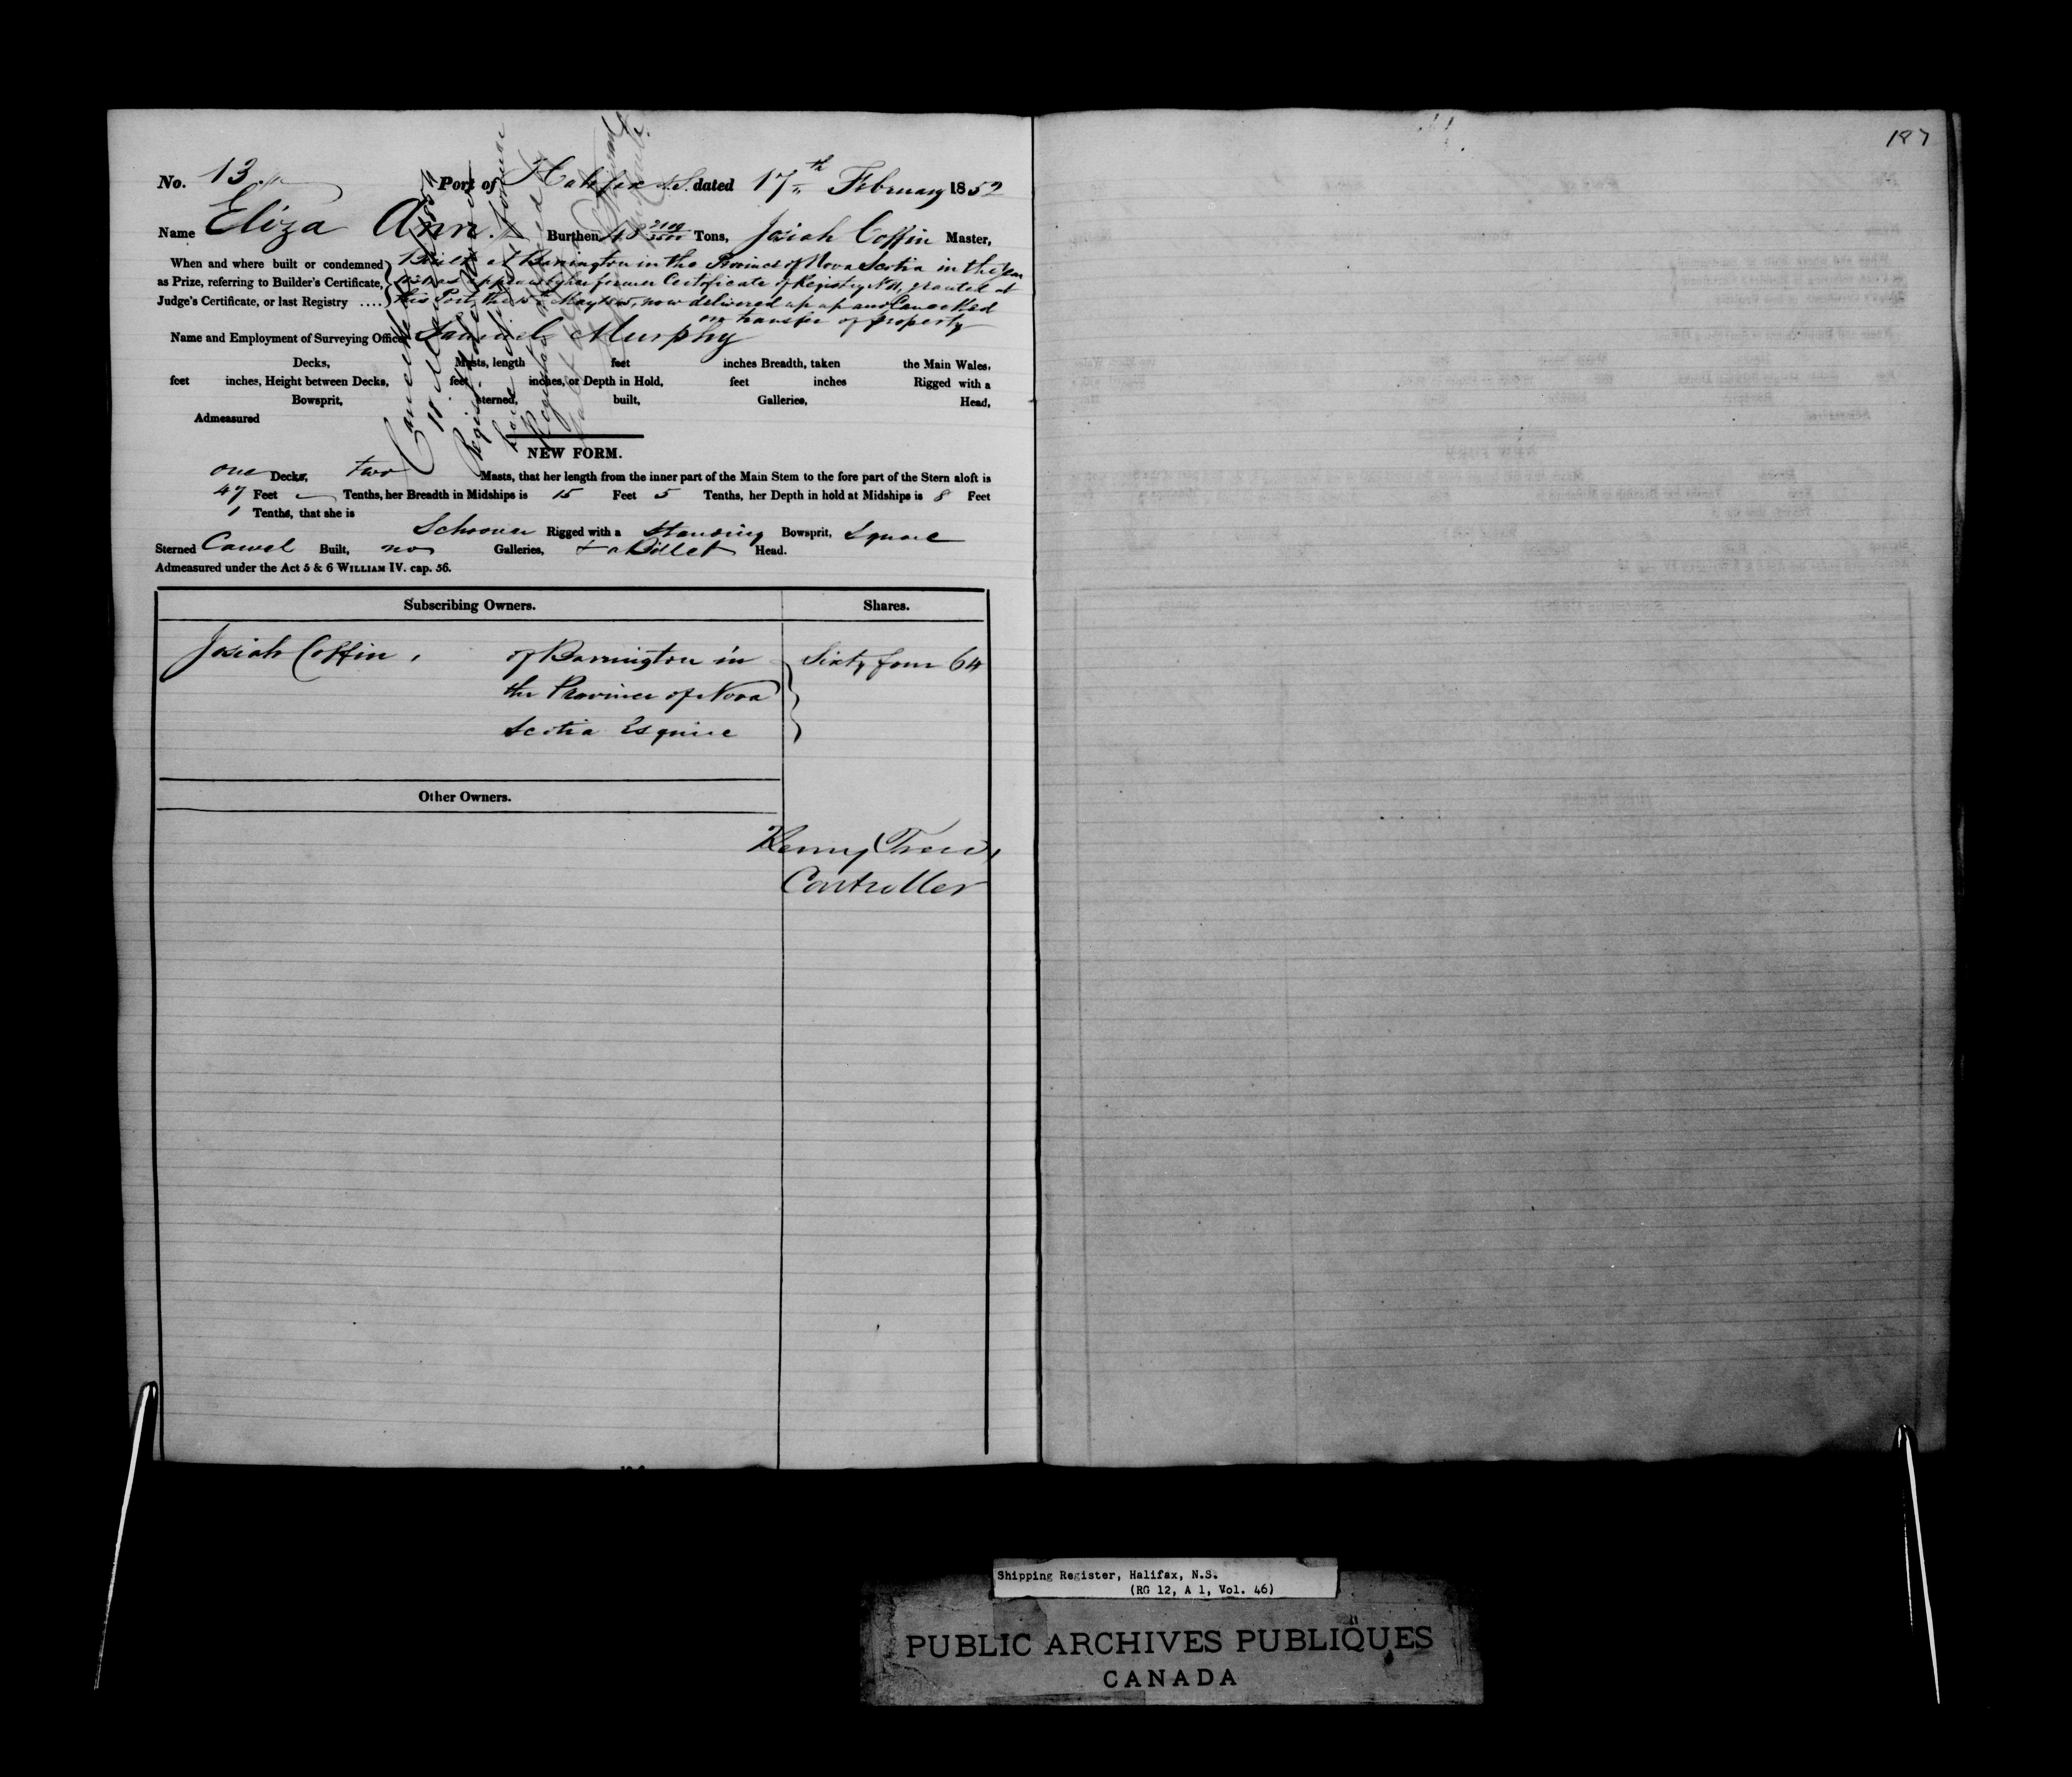 187
No. 13 Port of Halifax N.S. dated 17th February 1852
Name Eliza Ann Burthen Tons, Josiah Coffin Master,
When and where built or condemned Built at Barrington in the Province of Nova Scotia in the Year
as Prize, referring to Builder's Certificate, as appears by her former Certificate of Registry No. granted at
Judge's Certificate, or last Registry .... this Port the now delivered up and Cancelled
on transfer of property
Name and Employment of Surveying Officer Samuel Murphy
Decks, Masts, length feet inches Breadth, taken the Main Wales,
feet inches, Height between Decks, feet inches, or Depth in Hold, feet inches Rigged with a
Bowsprit, sterned, built, Galleries, Head,
Admeasured
NEW FORM.
one Decks, two Masts, that her length from the inner part of the Main Stem to the fore part of the Stern aloft is
47 Feet Tenths, her Breadth in Midships is 15 Feet 5 Tenths, her Depth in hold at Midships is 8 Feet
1 Tenths, that she is
Schooner Rigged with a Standing Bowsprit, Square
Sterned Carvel Built, no Galleries, & a Billet Head.
Admeasured under the Act 5 & 6 WILLIAM IV. cap. 56.
Subscribing Owners. Shares.
Josiah Coffin, of Barrington in Sixty four 64
the Province of Nova
Scotia Esquire
Other Owners.
Henry
Controller
Shipping Register, Halifax, N.S.
(RG 12, A 1, Vol. 46)
PUBLIC ARCHIVES PUBLIQUES
CANADA